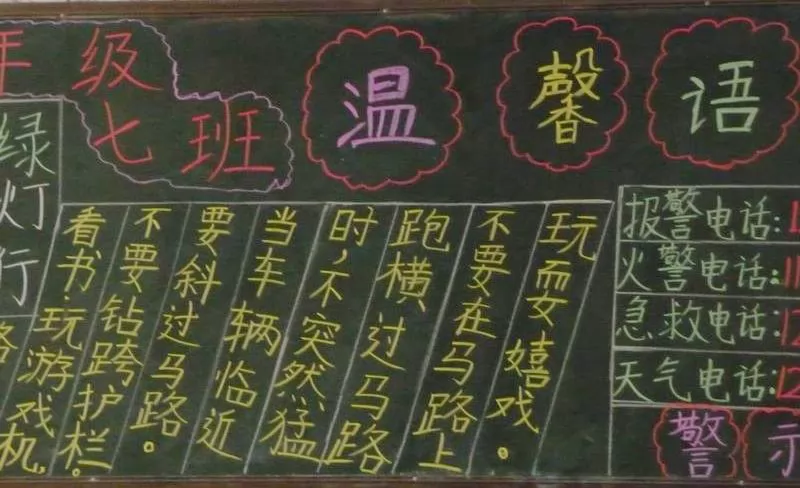 年级
七班
温馨语
绿灯行
看书.玩游戏机,
不要钻跨护栏.
要斜过马路。
当车辆临近
时,不突然猛
跑横过马路
不要在马路上
玩耍嬉戏。
报警电话:1
火警电话:1
急救电话:12
天气电话:12
警示